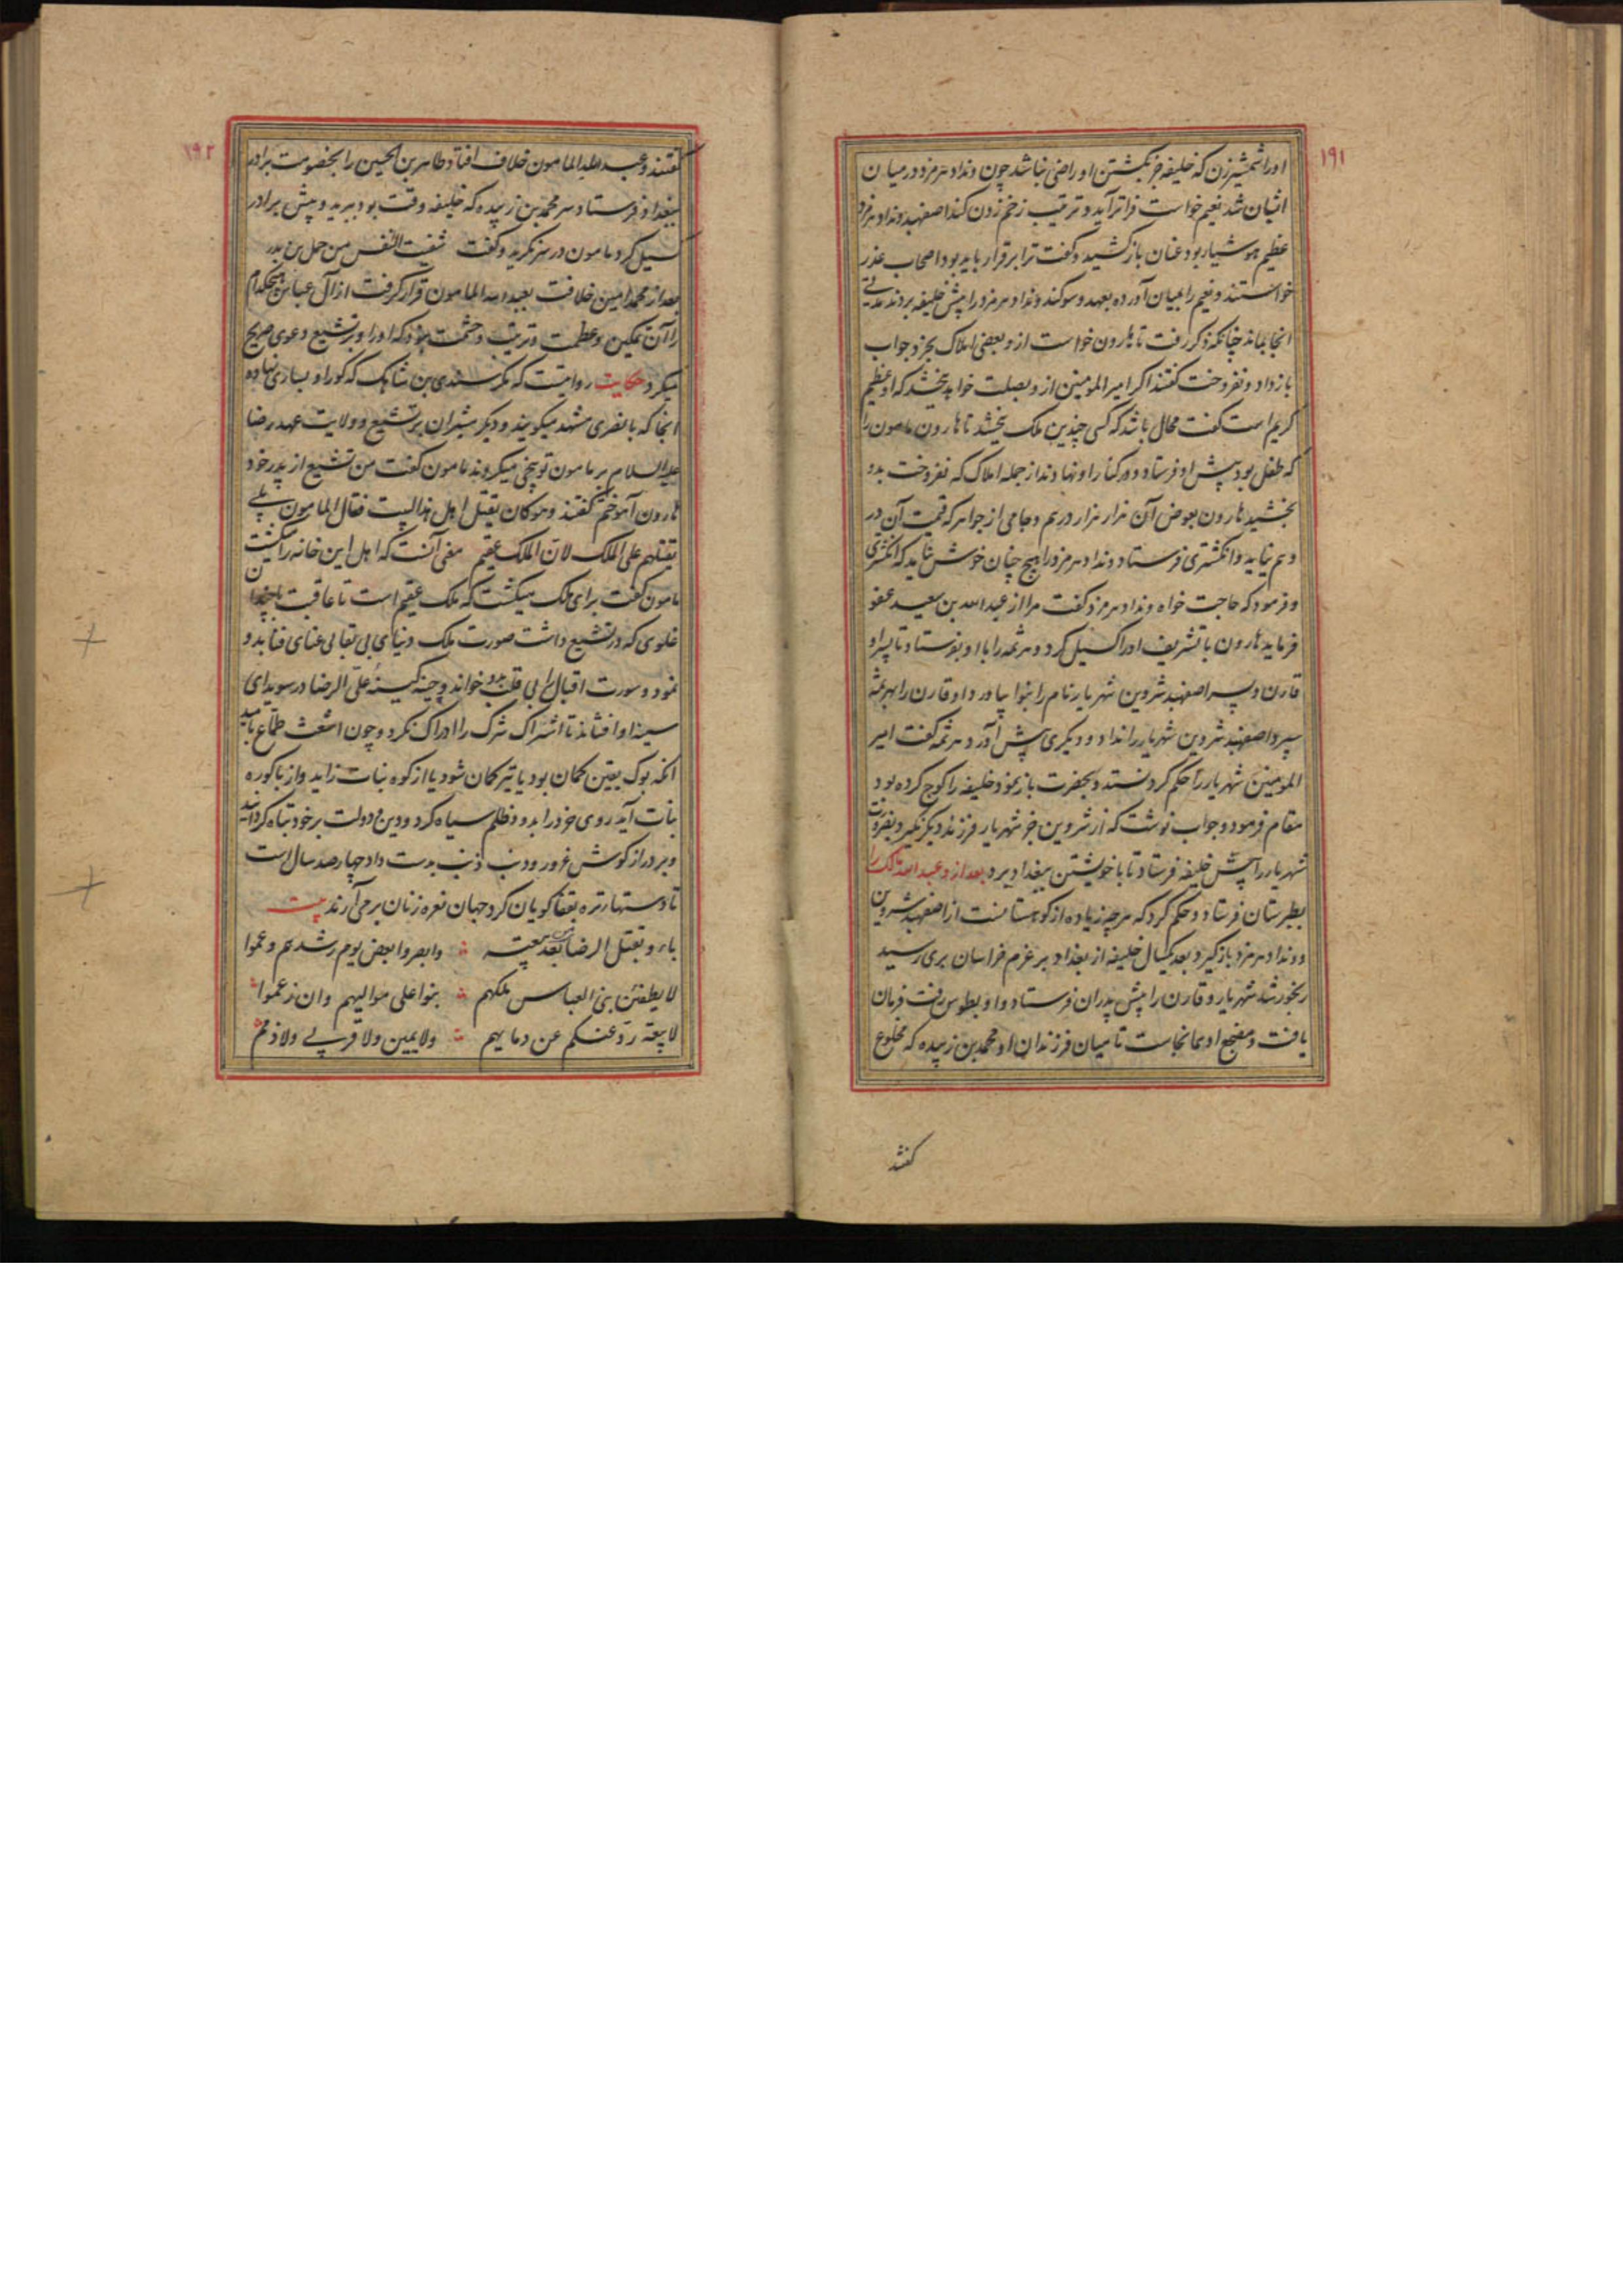 ۱۹۱
اورا شمشیر زن که خلیفه جز بکشتن او راضی نباشد چون ونداد هرمزد در میان
ایشان شد نعیم خواست فراتر آید و ترتیب زخم زدن کند اصفهبد ونداد هرمزد
عظیم هوشیار بود عنان باز کشید و گفت ترا برقرار باید بود اصحاب عذر
خواستند و نعیم را بمیان آورده بعهد و سوکند ونداد هرمزد را پیش خلیفه بردند مدتی
انجا بماند چنانکه ذکر رفت تا هارون خواست ازو بعضی املاک بخرد جواب
باز داد و نفروخت گفتند اکر امیر المومنین ازو بصلت خواهد ببخشد که او عظیم
کریم است گفت محال باشد که کسی چندین ملک ببخشد تا هارون مامون را
که طفل بود پیش او فرستاد و در کنار او نهادند از جمله املاک که نفروخت بدو
بخشید هارون بعوض آن هزار هزار درم و جامی از جواهر که قیمت آن در
وهم نیاید و انکشتری فرستاد ونداد هرمزد را هیچ چنان خوش نیاید که انکشتری
و فرمود که حاجت خواه ونداد هرمزد گفت مرا از عبد الله بن سعید عفو
فرماید هارون با تشریف اورا کسیل کرد و هرثمه را با او بفرستاد تا پسر او
قارن و پسر اصفهبد شروین شهریار نام را بنوا بیاورد او قارن را بهرثمه
سپرد اصفهبد شروین شهریار را نداد و دیکری پیش آورد هرثمه گفت امیر
المومنین شهریار را حکم کرد نستد و بحضرت باز نمود خلیفه را کوج کرده بود
مقام فرمود و جواب نوشت که از شروین جز شهریار فرزند دیکر نکیرد بضرورت
شهریار را پیش خلیفه فرستاد تا با خویشتن ببغداد برد بعد ازو عبد الله مالک را
بطبرستان فرستاد و حکم کرد که هرچه زیاده از کوهستانست از اصفهبد شروین
و ونداد هرمزد باز کیرد بعد یکسال خلیفه از بغداد بر عزم خراسان بری رسید
رنجور شد شهریار و قارن را پیش پدران فرستاد و او بطوس رفت فرمان
یافت و مضجع او بدانجاست تا میان فرزندان او محمد بن زبیده که مخلوع
کفتند
۱۹۲
کفتند و عبد الله المامون خلاف افتاد طاهر بن الحسین را بخصومت برادر
ببغداد فرستاد سر محمد بن زبیده که خلیفه وقت بود ببرید و پیش برادر
کسیل کرد مامون در سر نکرید و گفت شفیت النفس من حمل بن بدر
بعد از محمد امین خلافت بعبد الله المامون قرار کرفت از آل عباس هیچکدام
را آن تمکین و عظمت و تربیت و حشمت نبود که اورا و بر تشیع دعوی صریح
میکرد حکایت روایتست که مکر سندی بن شاهک که کور او بساری نهاده
انجا که با نصری مشهد میکویند و دیکر مشیران بر تشیع و ولایت عهد رضا
علیه السلام بر مامون توبیخی میکردند مامون گفت من تشیع از پدر خود
هارون آموختم گفتند و هو کان یقتل اهل هذا البیت فقال المامون بلی
یقتلهم علی الملک لان الملک عقیم معنی آنست که اهل این خانه را میکشت
مامون گفت برای ملک میکشت که ملک عقیم است تا عاقبت با چندان
غلوی که در تشیع داشت صورت ملک دنیای بی بقا بی غنای فنا بدو
نمود و سورت اقبال را بی قلب بدو خواند و چینه کینه علی الرضا در سویدای
سینه او افشاند تا اشراک شرک را ادراک نکرد و چون اشعث طماع بامید
انکه بوک یقین کمان بود یا تیر کمان شود یا از کوه نبات زاید و از باکوره
بنات آید روی خود را بدود ظلم سیاه کرد و دین و دولت بر خود تباه کردانید
و بر دراز کوش غرور و دنب ذنب بدست داد چهار صد سال است
تا دستها تره بقفا کویان کرد جهان نعره زنان بر می آرند بیت
باءو بقتل الرضا من بعد بیعته وابصروا بعض یوم رشدهم وعموا
لا یطغین بنی العباس ملکهم بنوا علی موالیهم وان زعموا
لا بیعة ردعتکم عن دمایهم ولا یمین ولا قربی ولا ذمم